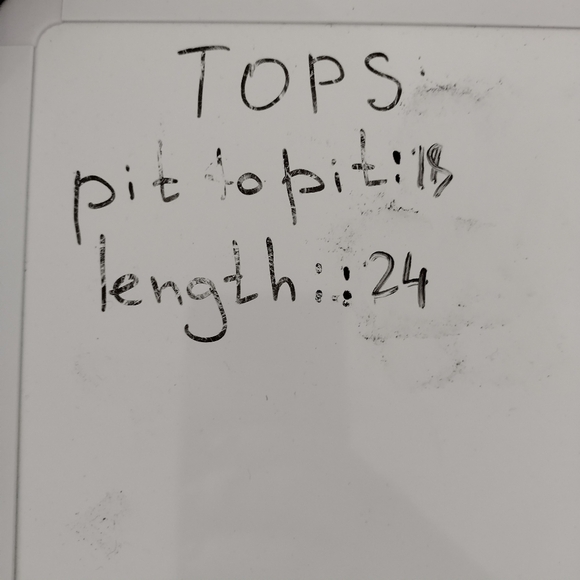 TOPS
pit to pit:18
length::24